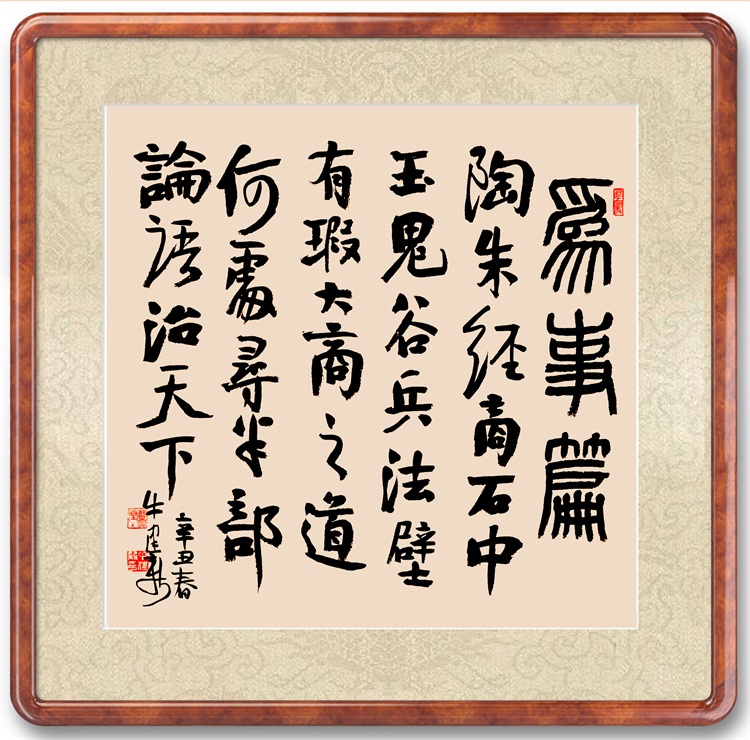 為事篇
陶朱經商石中
玉鬼谷兵法壁
有瑕大商之道
何處尋半部
論語治天下
辛丑春